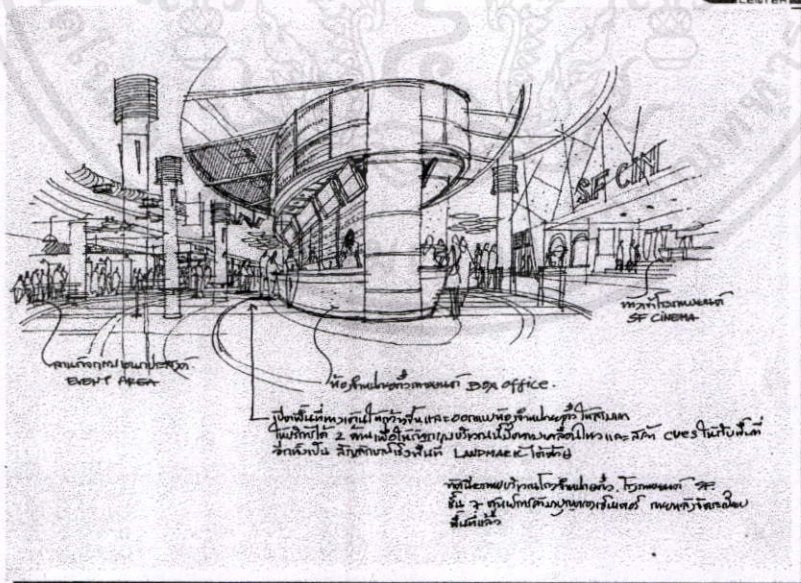 CENTER
SF CIN
ทางเข้าโรงภาพยนต์
SF CINEMA
ลานกิจกรรมอเนกประสงค์
EVENT AREA
ห้องจำหน่ายตั๋วภาพยนต์ BOX OFFICE.
เปิดพื้นที่ทางเดินให้กว้างขึ้นและออกแบบห้องจำหน่ายตั๋วให้สามารถ
ให้บริการได้ 2 ด้านเพื่อให้บริเวณนี้มีความเคลื่อนไหวและสร้าง CUES ให้กับพื้นที่
อีกทั้งเป็น สัญลักษณ์ของพื้นที่ LANDMARK ได้ด้วย
ทัศนียภาพบริเวณโถงจำหน่ายตั๋ว โรงภาพยนต์ SF
ชั้น 7 ศูนย์การค้ามาบุญครองเซ็นเตอร์ ภายหลังจัดระเบียบ
พื้นที่แล้ว